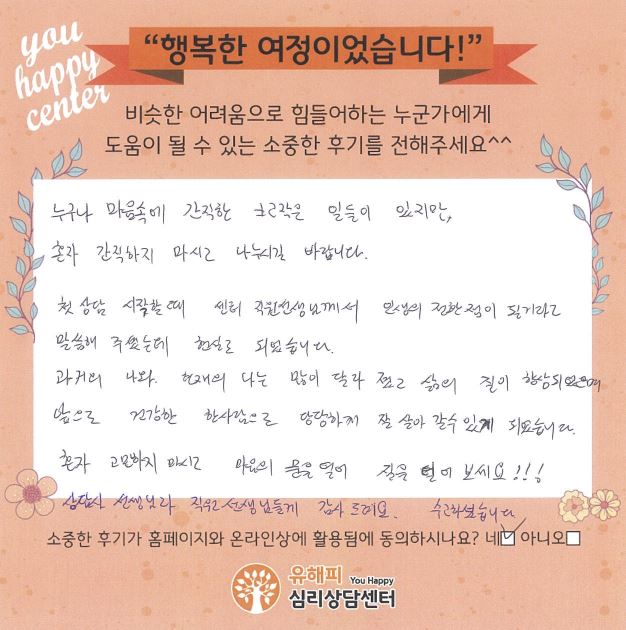 you
happy
center
“행복한 여정이었습니다!”
비슷한 어려움으로 힘들어하는 누군가에게
도움이 될 수 있는 소중한 후기를 전해주세요^^
누구나 마음속에 간직한 크고작은 일들이 있지만,
혼자 간직하지 마시고 나누시길 바랍니다.
첫 상담 시작할때 센터 직원선생님께서 인생의 전환점이 될거라고
말씀해 주셨는데 현실로 되었습니다.
과거의 나와. 현재의 나는 많이 달라 졌고 삶의 질이 향상되었으며
앞으로 건강한 한사람으로 당당하게 잘 살아 갈수 있게 되었습니다.
혼자 고민하지 마시고 마음의 문을 열어 보세요!!!
상담사 선생님과 직원선생님들께 감사드려요. 수고하셨습니다
소중한 후기가 홈페이지와 온라인상에 활용됨에 동의하시나요? 네☑ 아니오□
유해피 You Happy
심리상담센터